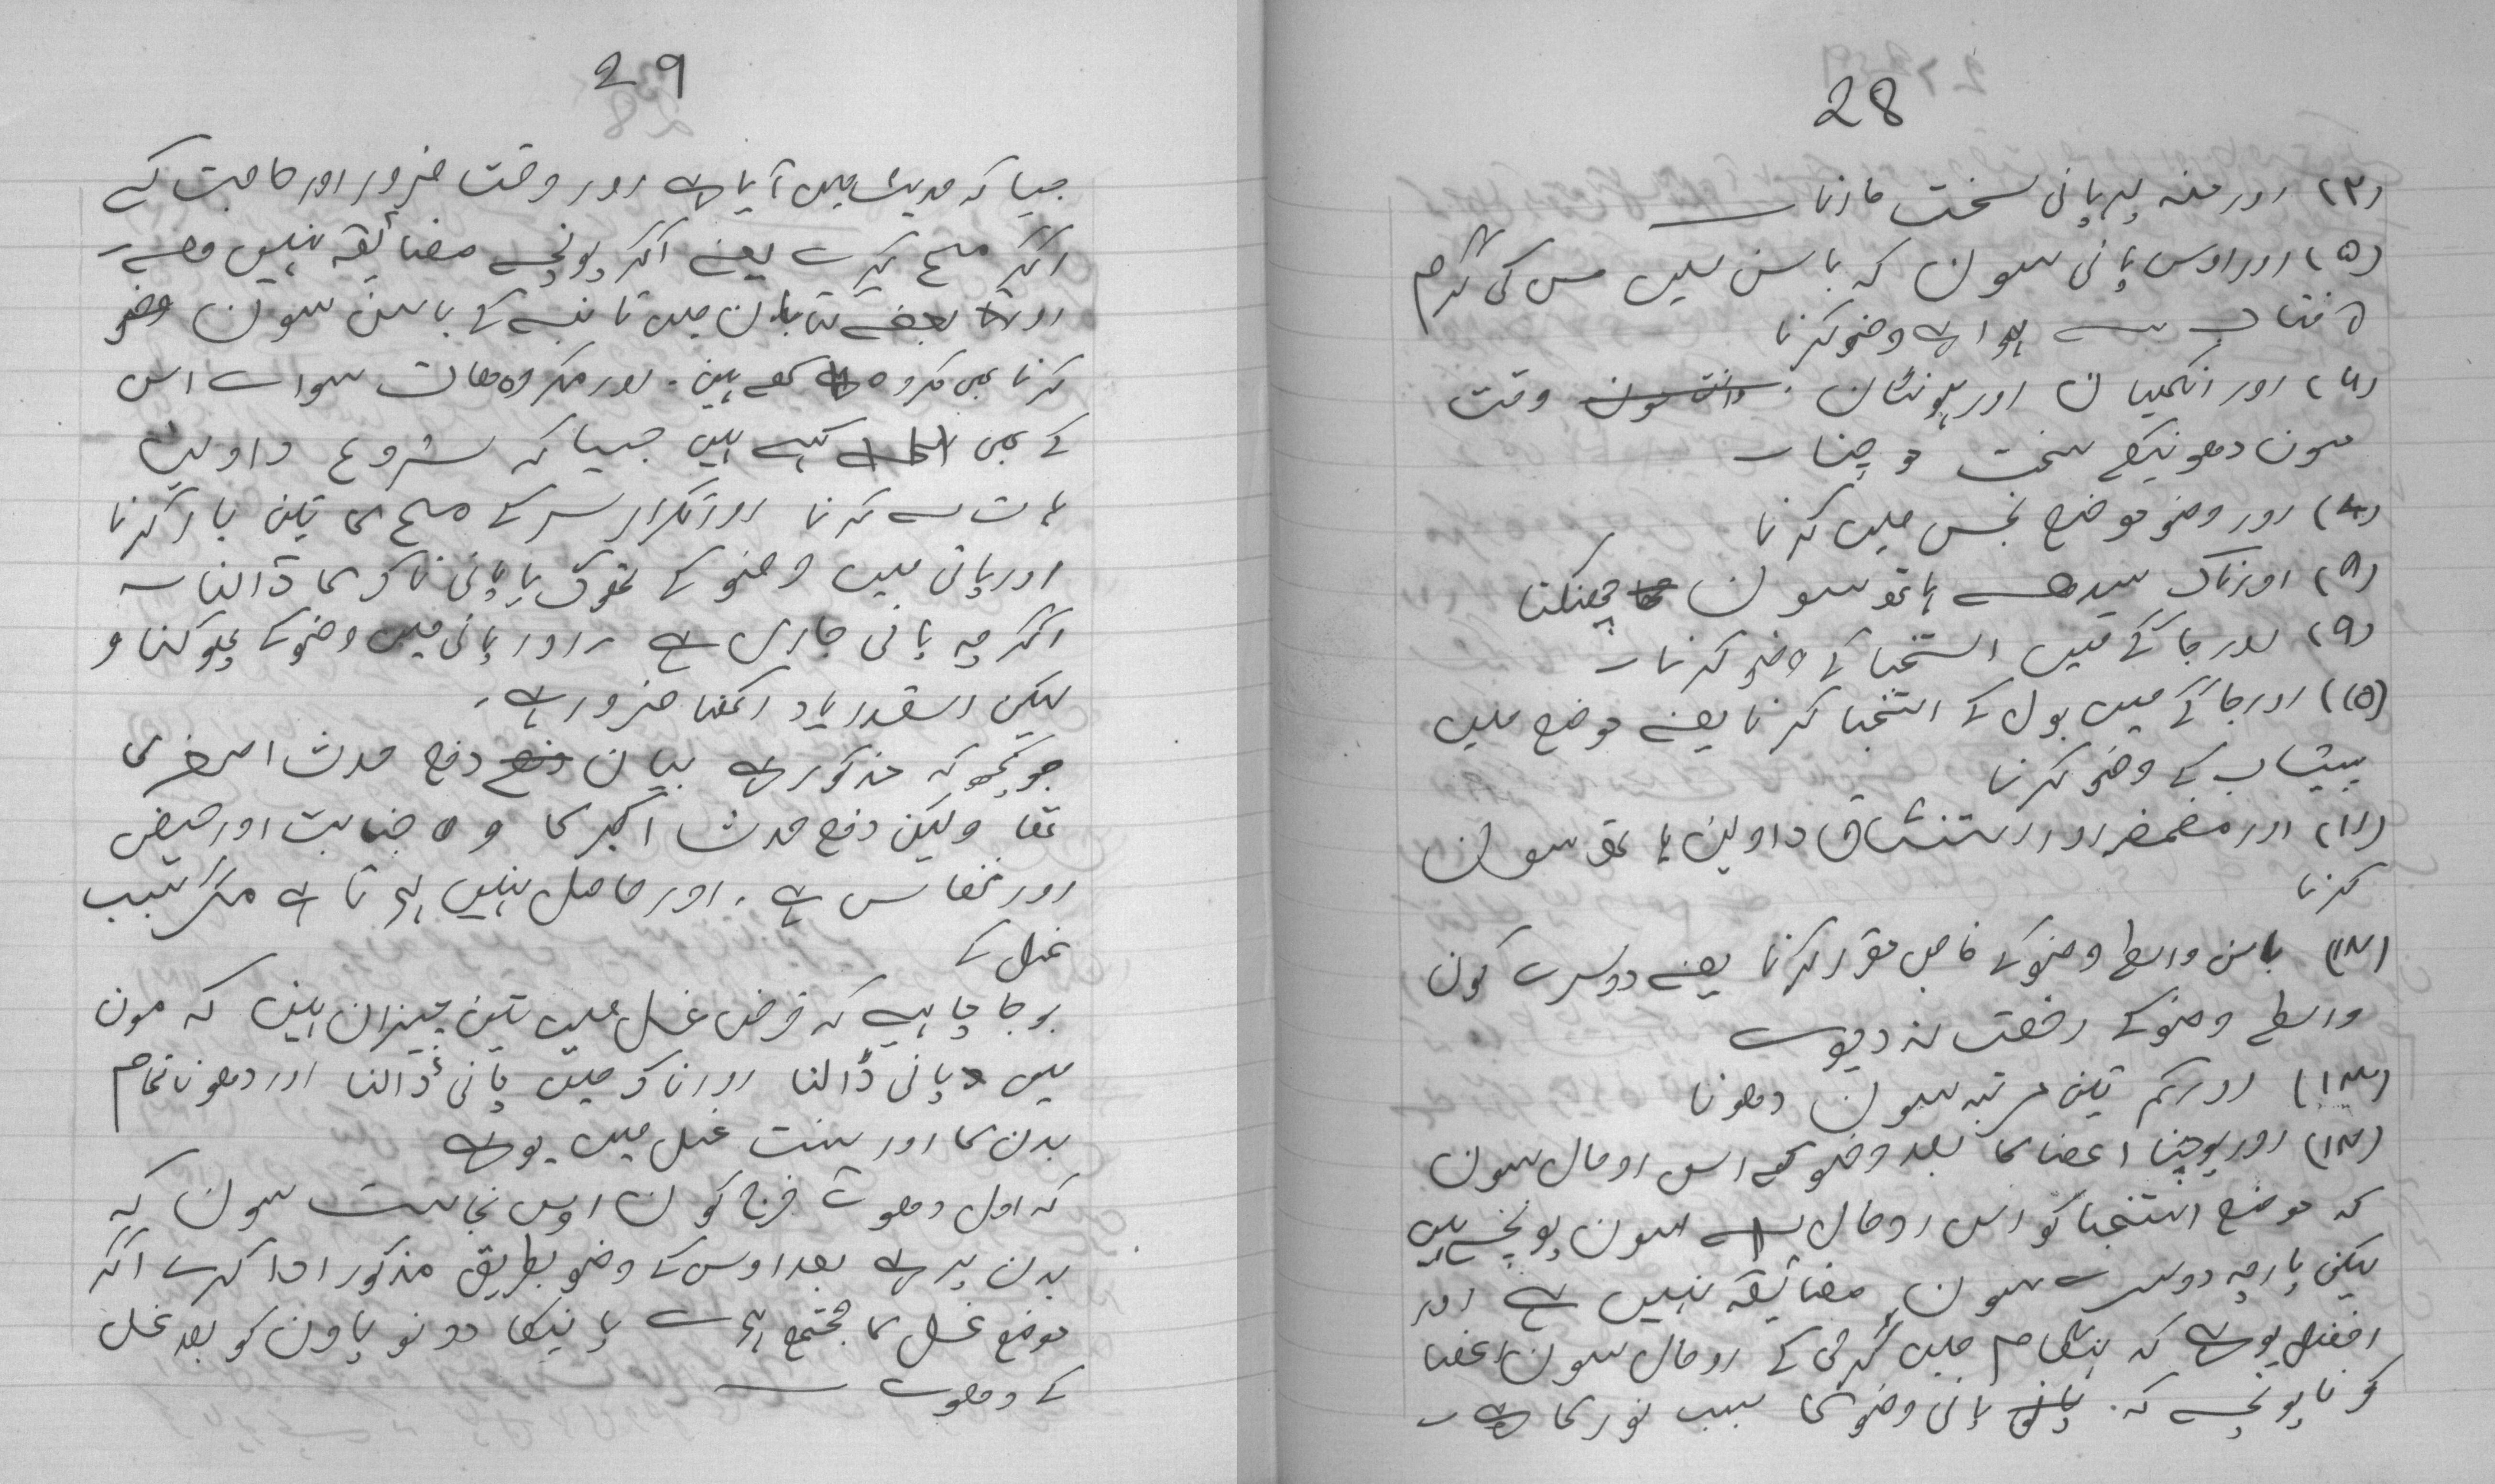 28
(۴) اور منہ پر پانی سخت مارنا
(۵) اور اوس پانی سون کہ باسن میں مس کی گرم
آفتاب سے ہوا ہے وضو کرنا
(۶) اور انکھیان اور ہونٹان وقت
مون دھونیکے سخت
(۷) اور وضو موضع نجس میں کرنا
(۸) اور ناک سیدھے ہاتھ سون چھنکنا
(۹) اور جاگے میں استنجا کے وضو کرنا
(۱۰) اور جاگے میں بول کے استنجا کرنا یعنے موضع میں
پیشاب کے وضو کرنا
(۱۱) اور مضمضہ اور استنشاق داوین ہاتھ سون
کرنا
(۱۲) باسن واسطے وضو کے خاص مقرر کرنا یعنے دوسرے کون
واسطے وضو کے رخصت نہ دیوے
(۱۳) اور کم تین مرتبہ سون دھونا
(۱۴) اور پوچنا اعضا کا بعد وضو کے اس رومال سون
کہ موضع استنجا کو اس رومال سون پونچے ہیں
لیکن پارچہ دوسرے سون مضائقہ نہیں ہے اور
افضل یو ہے کہ ہنگام میں گرمی کے رومال سون اعضا
کو نا پونچے کہ پانی وضو کا سبب نور کا ہے
29
جیسا کہ حدیث میں آیا ہے اور وقت ضرور اور حاجت کے
اگر مسح کرے یعنے اگر پونچے مضائقہ نہیں
اور بعضے کتابان میں تانبے کے باسن سون وضو
کرنا بھی مکروہ کہے ہیں۔ اور مکروہات سواے اس
کے بھی کہے ہیں جیسا کہ شروع داویں
ہات سے کرنا اور تکرار سر کے مسح کا تین بار کرنا
اور پانی میں وضو کے تھوک یا پانی ناک کا ڈالنا
اگرچہ پانی جاری ہے اور پانی میں وضو کے پھوکنا و
لیکن اسقدر یاد رکھنا ضرور ہے۔
جو کچھ کہ مذکور ہے بیان دفع حدث اصغر کا
تھا ولیکن دفع حدث اکبر کا وہ جنابت اور حیض
اور نفاس ہے۔ اور حاصل نہیں ہوتا ہے مگر سبب
غسل کے
بوجا چاہیے کہ فرض غسل میں تین چیزان ہیں کہ مون
میں پانی ڈالنا اور ناک میں پانی ڈالنا اور دھونا تمام
بدن کا اور سنت غسل میں یو ہے
کہ اول دھوے فرج کون اوس نجاست سون کہ
بدن پر ہے بعد اوس کے وضو بطریق مذکور ادا کرے اگر
موضع غسل کا مجتمع ہوے پانیکا دونو پاون کو بعد غسل
کے دھوے